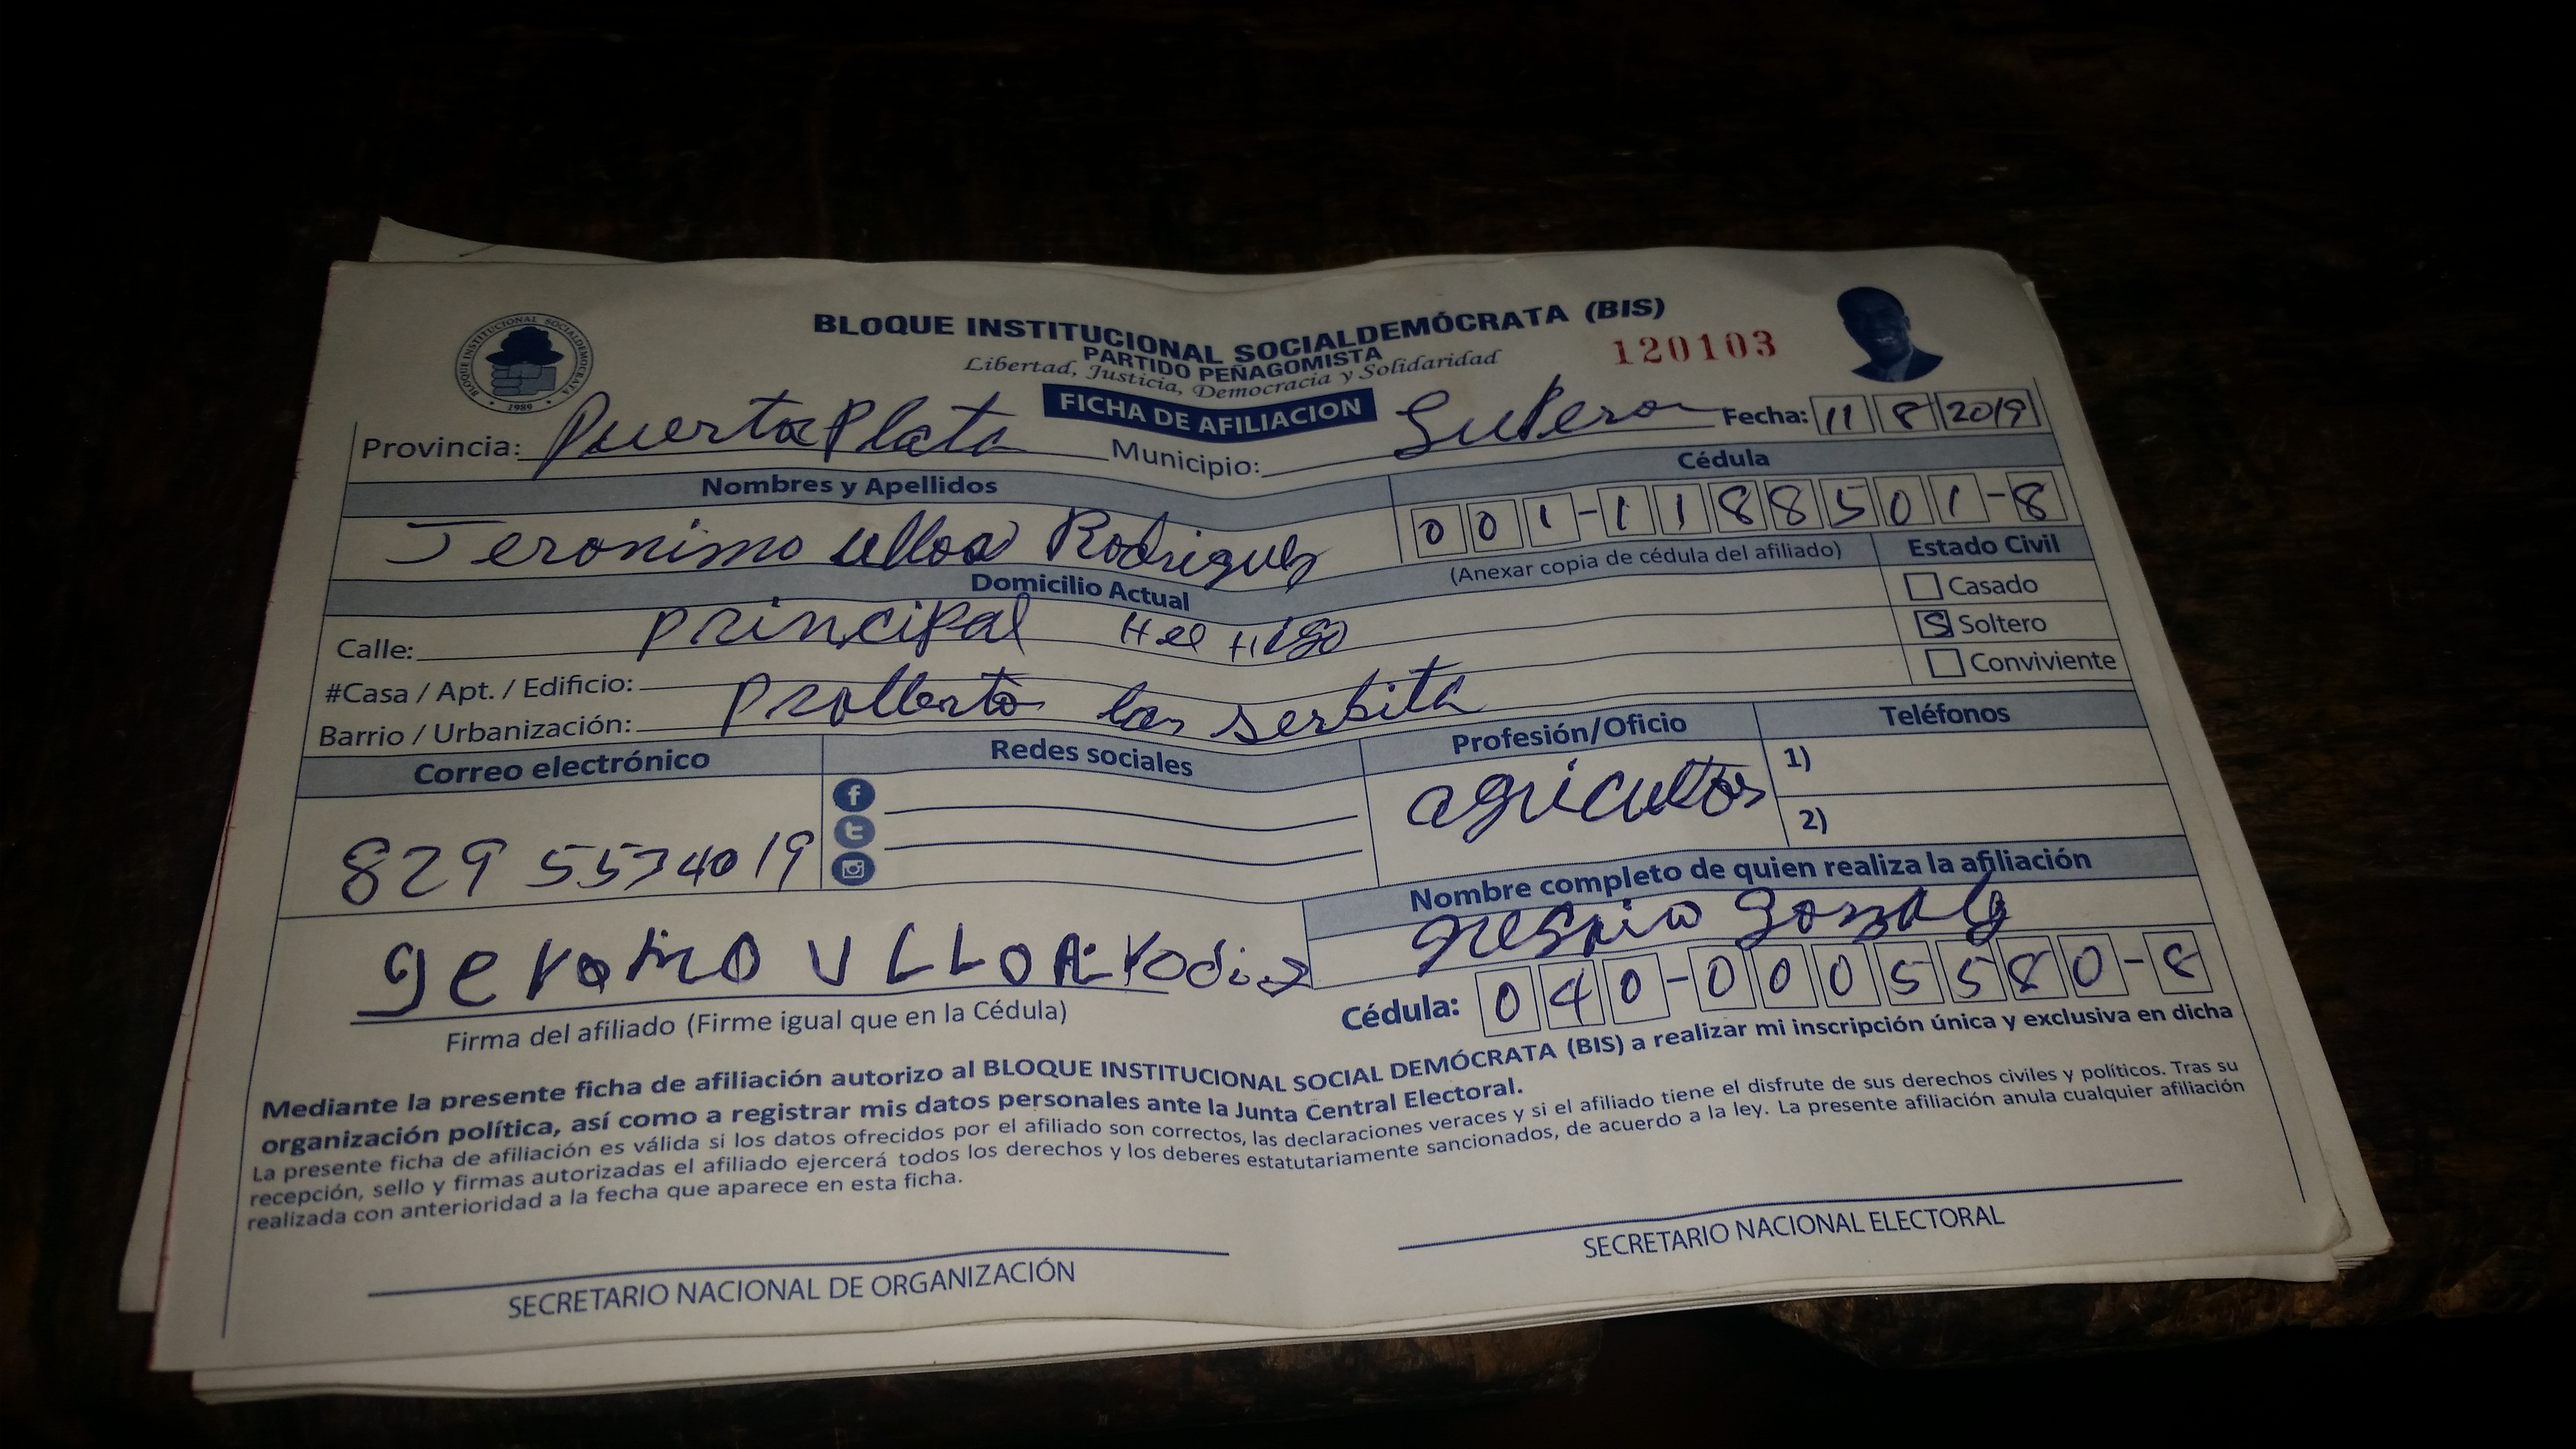 BLOQUE INSTITUCIONAL SOCIALDEMOCRATA
1989
BLOQUE INSTITUCIONAL SOCIALDEMÓCRATA (BIS)
PARTIDO PEÑAGOMISTA
Libertad, Justicia, Democracia y Solidaridad
120103
FICHA DE AFILIACION
Provincia: Puerta Plata Municipio: Luperon Fecha: 11 8 2019
Nombres y Apellidos Cédula
Jeronimo ulloa Rodriguez 001-1188501-8
(Anexar copia de cédula del afiliado)
Domicilio Actual Estado Civil
Calle: principal Casado
#Casa / Apt. / Edificio: S Soltero
Barrio / Urbanización: Conviviente
Correo electrónico Redes sociales Profesión/Oficio Teléfonos
829 5574019 agricultor 1)
2)
Nombre completo de quien realiza la afiliación
geronimo ULLOA
Firma del afiliado (Firme igual que en la Cédula) Cédula: 040-0005580-8
Mediante la presente ficha de afiliación autorizo al BLOQUE INSTITUCIONAL SOCIAL DEMÓCRATA (BIS) a realizar mi inscripción única y exclusiva en dicha
organización política, así como a registrar mis datos personales ante la Junta Central Electoral.
La presente ficha de afiliación es válida si los datos ofrecidos por el afiliado son correctos, las declaraciones veraces y si el afiliado tiene el disfrute de sus derechos civiles y políticos. Tras su
recepción, sello y firmas autorizadas el afiliado ejercerá todos los derechos y los deberes estatutariamente sancionados, de acuerdo a la ley. La presente afiliación anula cualquier afiliación
realizada con anterioridad a la fecha que aparece en esta ficha.
SECRETARIO NACIONAL DE ORGANIZACIÓN SECRETARIO NACIONAL ELECTORAL